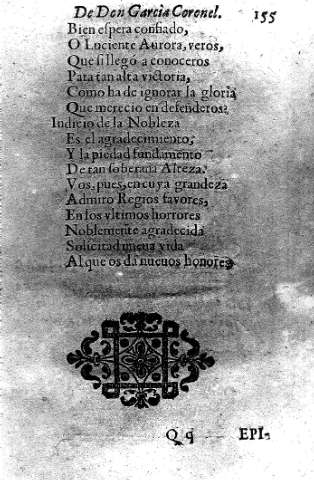 De Don Garcia Coronel. 155
Bien espera confiado,
O Luciente Aurora, veros,
Que si llegó a conoceros
Para tan alta victoria,
Como ha de ignorar la gloria
Que merecio en defenderos?
Indicio de la Nobleza
Es el agradecimiento,
Y la piedad fundamento
De tan soberana Alteza.
Vos, pues, en cuya grandeza
Admiro Regios favores,
En los vltimos horrores
Noblemente agradecida
Solicitad nueua vida
Al que os dà nueuos honores
Qq EPI,